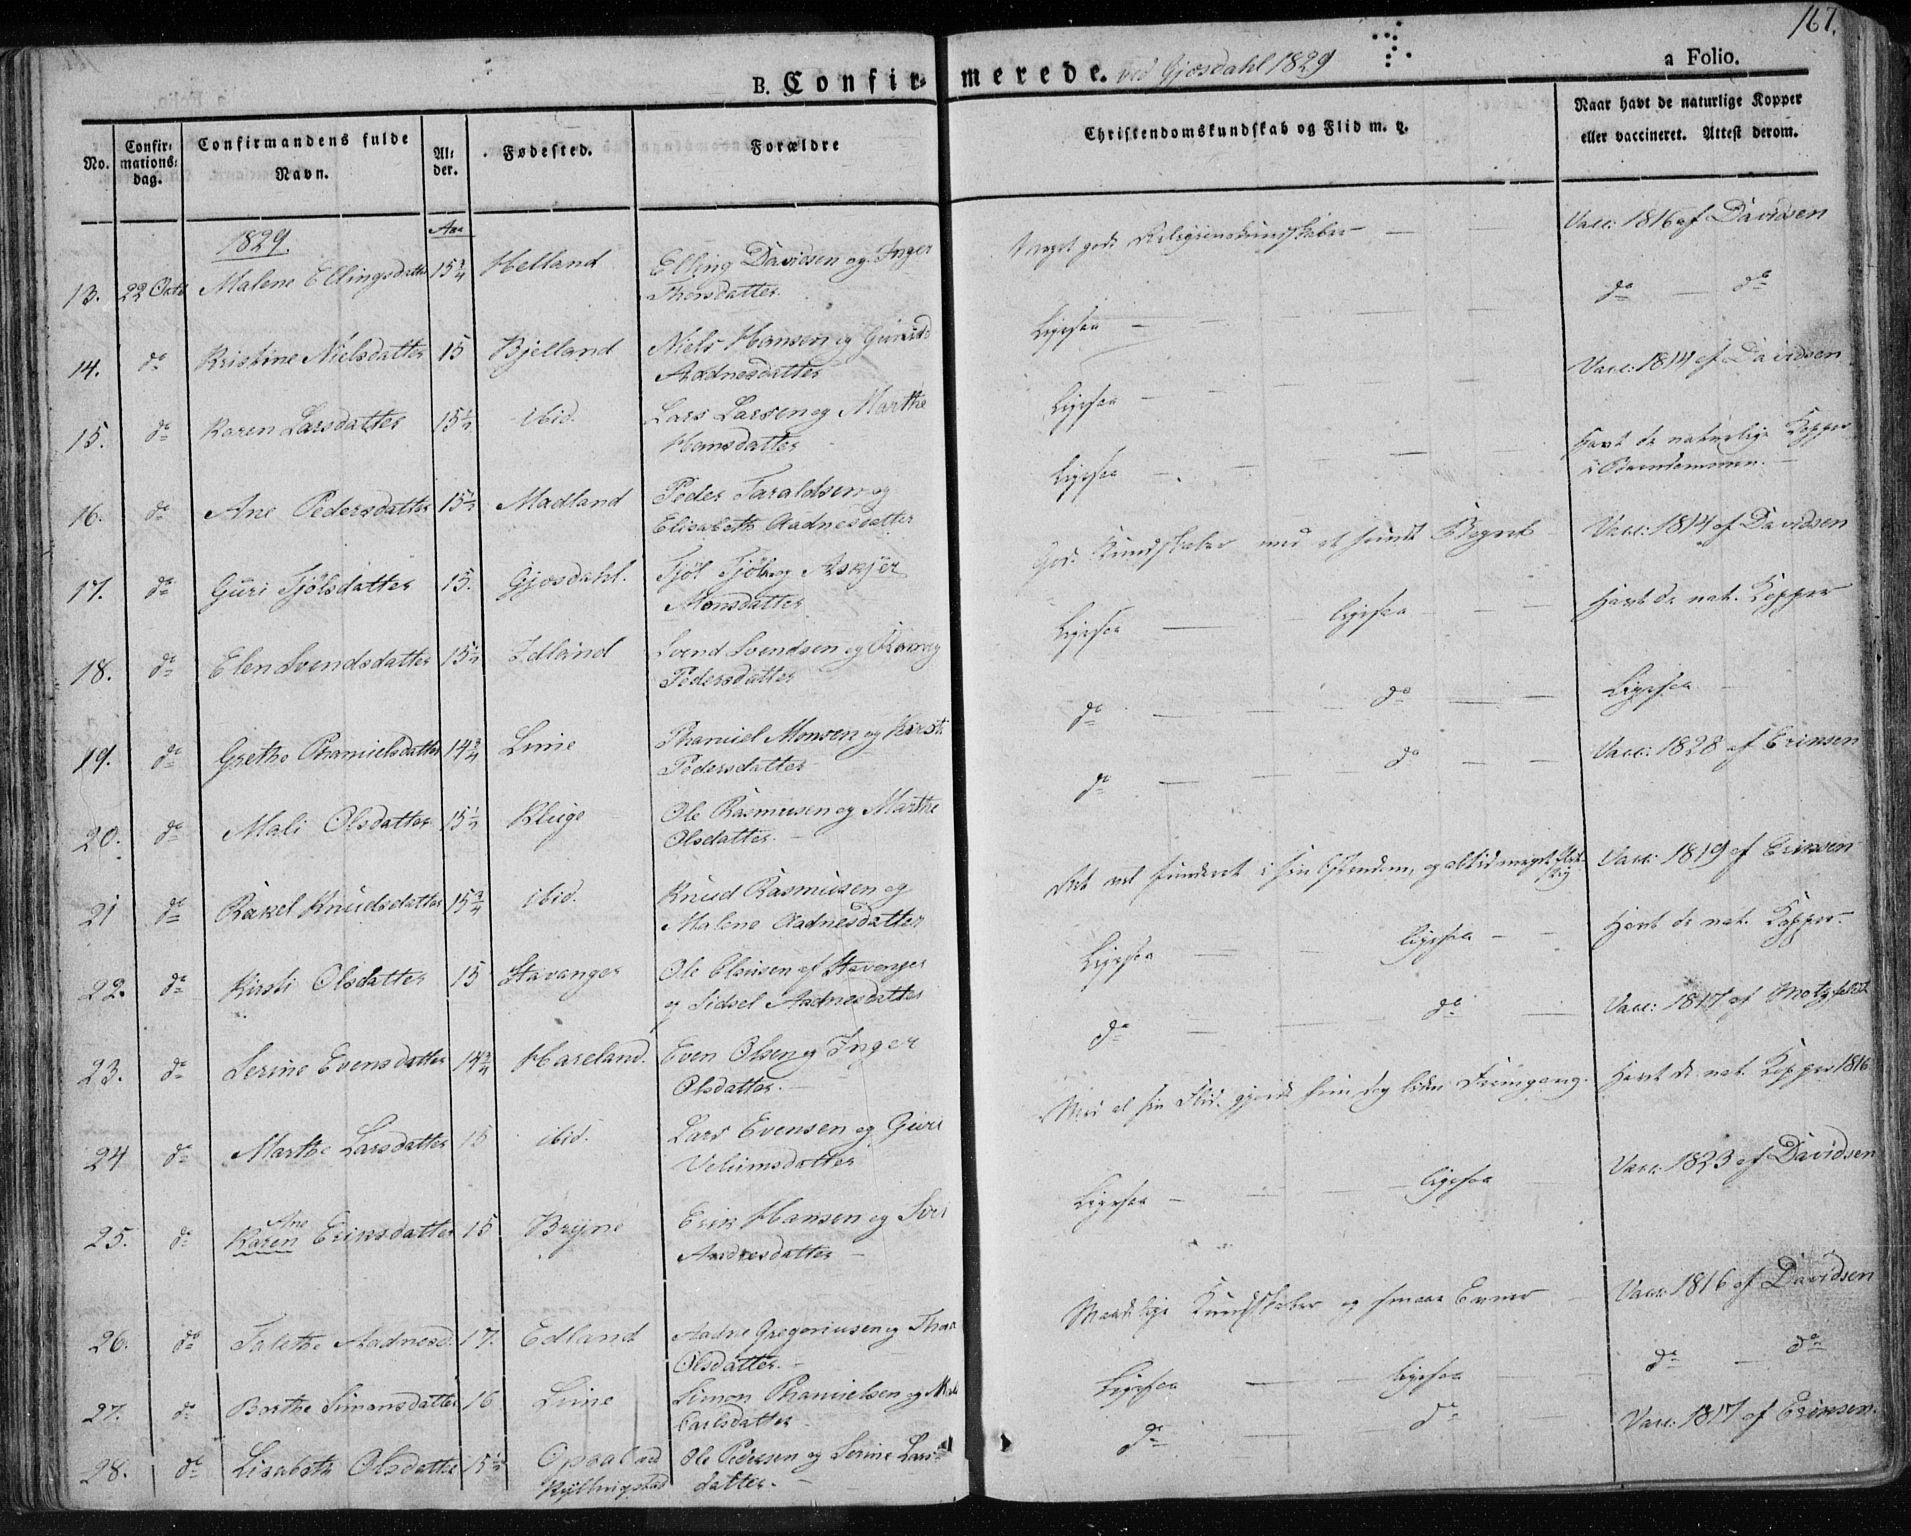 167.
B. Confirmerede. ved Gjæsdahl 1829
a Folio.
No.
Confirmations-dag.
Confirmandens fulde Navn.
Alder.
Fødested.
Forældre
Christendomskundskab og Flid m. v.
Naar havt de naturlige Kopper eller vaccineret. Attest derom.
1829.
Aar
13. 22 Octb Malene Ellingsdatter 15 3/4 Helland Elling Davidsen og Inger
Thorsdatter. Meget gode Religionskundskaber — — Vacc: 1816 af Davidsen
14. do Kristine Nielsdatter 15 Bjelland Niels Hansen og
Aadnesdatter Ligesaa — — — do — do
15. do Karen Larsdatter 15 1/2 ibid. Lars Larsen og Marthe
Hansdatter Ligesaa — — — Vacc: 1814 af Davidsen
16. do Ane Pedersdatter 15 1/2 Madland Peder Taraldsen og
Elisabeth Aadnesdatter Ligesaa — — — Havt de naturlige Kopper
i Barndommen. —
17. do Guri Tjølsdatter 15. Gjæsdahl. Tjøl Tjøls og Askjer
Monsdatter Gode Kundskaber med et sundt Begreb Vacc: 1814 af Davidsen
18. do Elen Svendsdatter 15 1/2 Edland Svend Svendsen og
Pedersdatter Ligesaa — ligesaa — — Havt de nat. Kopper
19. do Grethe Thamielsdatter 14 3/4 Lime Thamiel Monsen og Kirsti
Pedersdatter do — — do — — Ligesaa
20. do Mali Olsdatter 15 1/2 Kluge Ole Rasmusen og Marthe
Olsdatter. — do — — do — — Vacc: 1828 af Eriksen
21 do Rakel Knudsdatter 15 3/4 ibid. Knud Rasmusen og
Malene Aadnesdatter Ret vel funderet i sin Xstendom, og altid meget flittig Vacc: 1819 af Eriksen
22. do Kirsti Olsdatter 15 Stavanger Ole Olsen af Stavanger
og Sidsel Aadnesdatter Ligesaa — — ligesaa — — Havt de nat. Kopper.
23. do Serine Evensdatter 14 3/4 Hareland. Even Olsen og Inger
Olsdatter. — do — — do — Vacc: 1817 af Motzfeldt
24 do Marthe Larsdatter 15 ibid. Lars Evensen og Guri
Velumsdatter Med al sin Flid gjorde hun dog liden Fremgang. Havt de nat. Kopper 1816
25. do Ane
Karen Eriksdatter 15 Bryne Erik Hansen og Siri
Aadnesdatter — Ligesaa — — — ligesaa Vacc: 1823 af Davidsen
26. do Talethe Aadnesd. 17. Edland Aadne Gregoriusen og
Olsdatter. — Maadelige Kundskaber og smaae Evner — Vacc: 1816 af Davidsen
27. do Barthe Simonsdatter 16 Lime Simon Thamielsen og
Carlsdatter Ligesaa — — ligesaa — do — do
28. do Lisabeth Olsdatter 15 1/2 Opsal ved
Kyllingstad Ole Pedersen og Serine Lars-
datter. — do — — do — Vacc: 1817 af Eriksen.